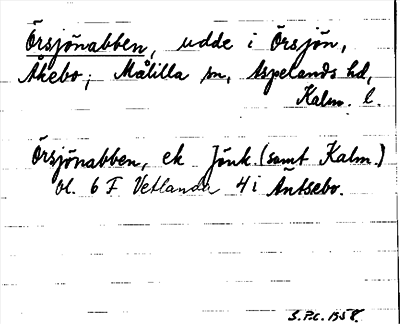 Örsjönabben, udde i Örsjön,
Åkebo; Målilla sn, Aspelands hd,
Kalm. l.
Örsjönabben, ek Jönk. (samt Kalm.)
Bl. 6 F Vetlanda 4 i Äntsebo.
S.P.C. 1958.